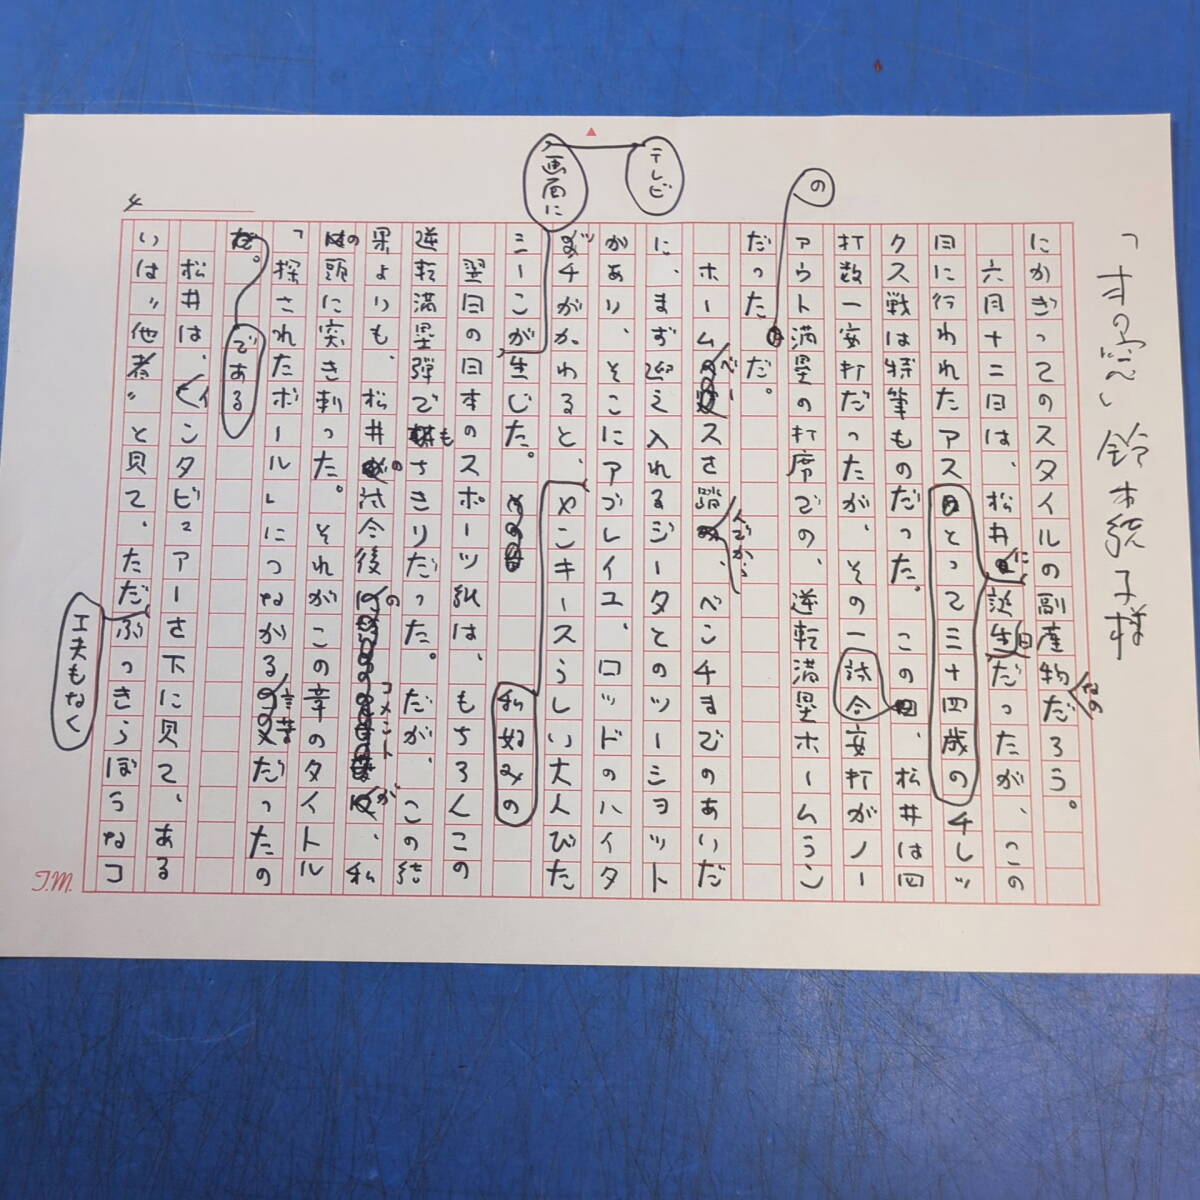 「オ の窓」鈴木統子様
にかぎってのスタイルの副産物なのだろう。
六月十二日は、松井に誕生日だったが、この
日に行われたアスとって三十四歳のチレッ
クス戦は特筆ものだった。この日、松井は四
打数一安打だったが、その一試合安打がノー
アウト満塁の打席での、逆転満塁ホームラン
だったのだ。
ホームベースを踏んでから、ベンチまでのあいだ
に、まず迎え入れるジータとのツーショット
があり、そこにアブレイユ、ロッドのハイタ
ッチがかわると、ヤンキースらしい大人びた
シーンが生じた。
テレビ
画面に
私好みの
翌日の日本のスポーツ紙は、もちろんこの
逆転満塁弾でもちきりだった。だが、この結
果よりも、松井の試合後のコメントが、私
の頭に突き刺った。それがこの章のタイトル
「探されたボール」につながる言葉だったの
である。
松井は、インタビュアーを下に見て、ある
いは〝他者〟と見て、ただぶっきらぼうなコ
工夫もなく
4
T.M.